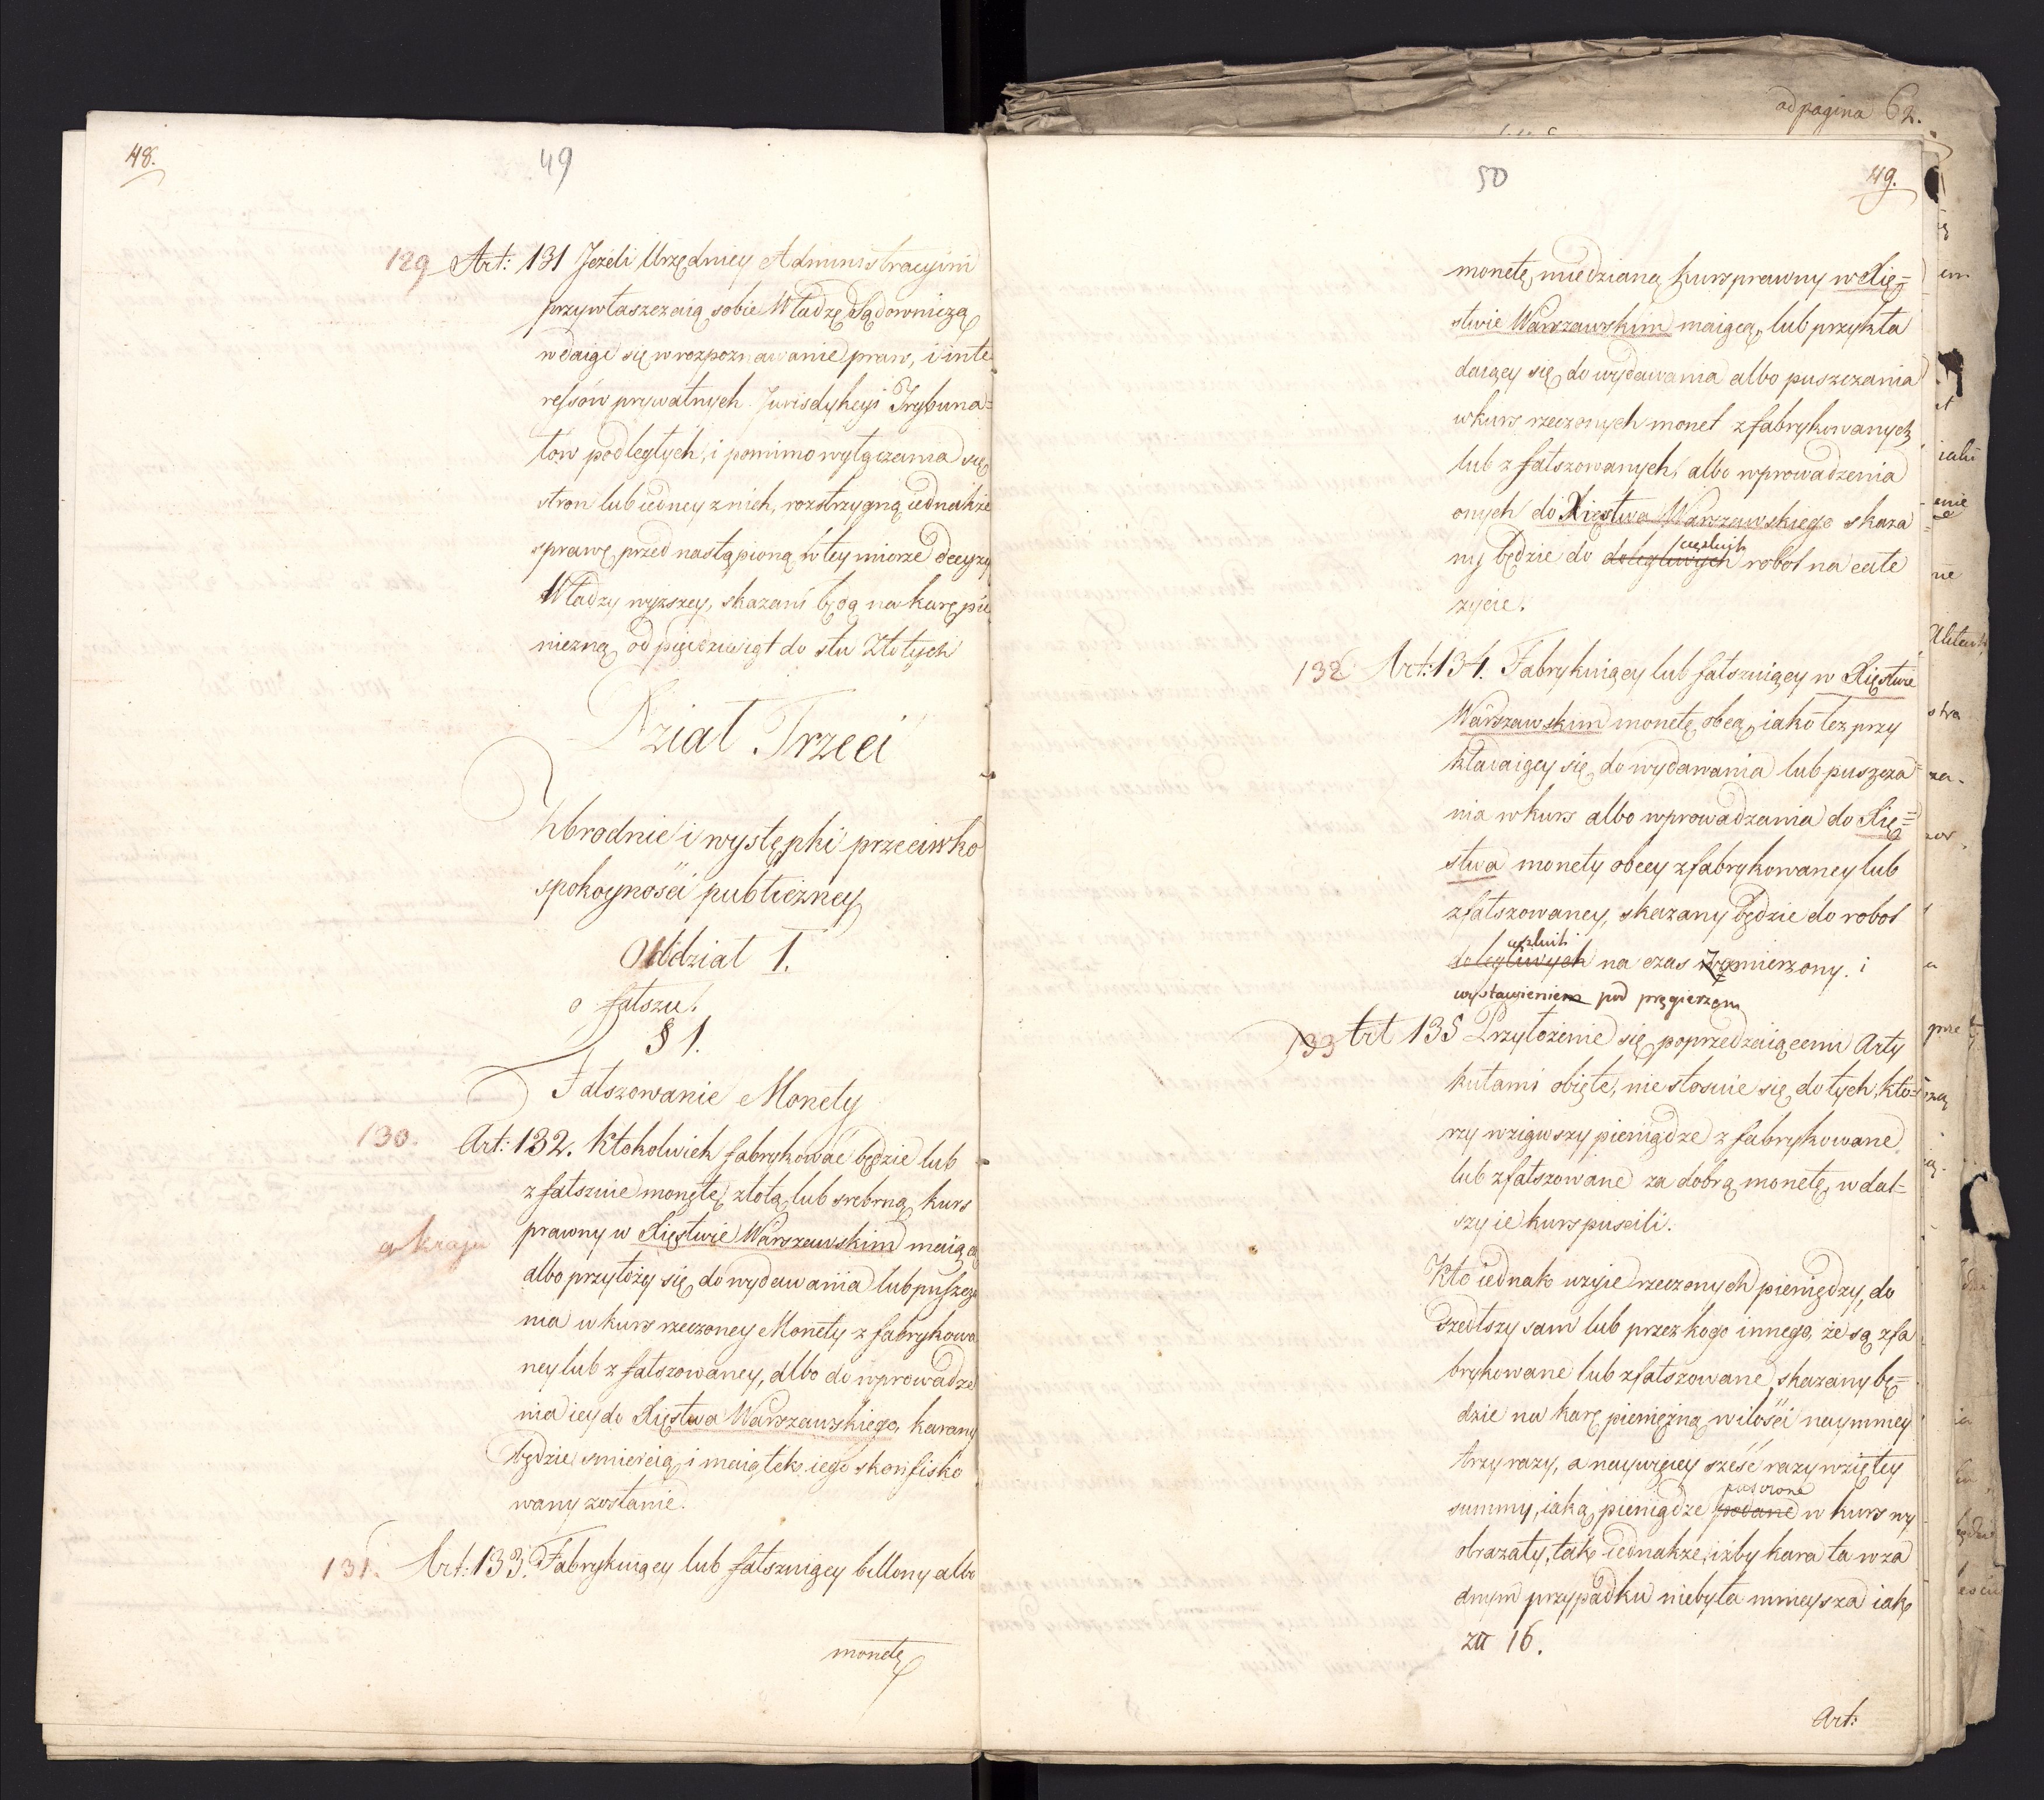 48.
49
129 Art: 131 Jeżeli Urzędnicy Administracyini
przywłaszczaią sobie Władzę Sądowniczą
wdaiąc się w rozpoznawanie praw, i inte
ressów prywatnych Jurisdykcyi Trybuna=
łów podległych, i pomimo wyłączania się
stron lub iedney z nich, rozstrzygną iednakże
sprawę przed nastąpioną w tey mierze decyzyą
Władzy wyższey, skazani będą na karę pie
niezną od pięćdziesiąt do stu Złotych
Dział Trzeci
Zbrodnie i występki przeciwko
spokoyności publiczney
Oddział I.
o fałszu.
§ 1.
Fałszowanie Monety
130. Art: 132. Ktokolwiek fabrykować będzie lub
zfałszuie monętę złotą lub srebrną kurs
prawny w Xięstwie Warszawskim maiącą
w kraju
albo przyłoży się do wydawania lub puszcza
nia w kurs rzeczoney Monety zfabrykowa
ney lub zfałszowaney, albo do wprowadze
nia iey do Xięstwa Warszawskiego, karany
będzie smiercią i maiątek iego skonfisko
wany zostanie.
131. Art: 133. Fabrykuiący lub fałszuiący billony albo
monetę
ad pagina 62.
50
49.
monetę miedzianą kurs prawny w Xię=
stwie Warszawskim maiącą, lub przykła
daiący się do wydawania albo puszczania
w kurs rzeczonych monet zfabrykowanych
lub zfałszowanych, albo wprowadzenia
onych do Xięstwa Warszawskiego skaza
ciężkich
ny będzie do dolegliwych robot na całe
życie.
132 Art: 134. Fabrykuiący lub fałszuiący w Xięstwie
Warszawskim monetę obcą, iako też przy
kładaiący się do wydawania lub puszcza=
nia w kurs albo wprowadzania do Xię=
stwa monety obcey zfabrykowaney lub
zfałszowaney, skazany będzie do robot
ciężkich
dolegliwych na czas wymierzony. i
wystawieniem pod pręgierzem
133 Art 135 Przyłożenie się poprzedzaiącemi Arty
kułami obięte, nie stosuie się do tych, któ=
rzy wziąwszy pieniądze zfabrykowane
lub zfałszowane za dobrą monetę, w dal=
szy ie kurs puscili.
Kto iednak użyie rzeczonych pieniędzy, do
szedłszy sam lub przez kogo innego, że są zfa
brykowane lub zfałszowane, skazany bę=
dzie na karę pieniężną w ilości naymniey
trzy razy, a naywięcey sześć razy wziętey
puszczone
summy, iaką pieniądze podane w kurs wy
obrażały, tak iednakże, iżby kara ta w ża
dnym przypadku niebyła mnieysza iak
zł 16.
Art: